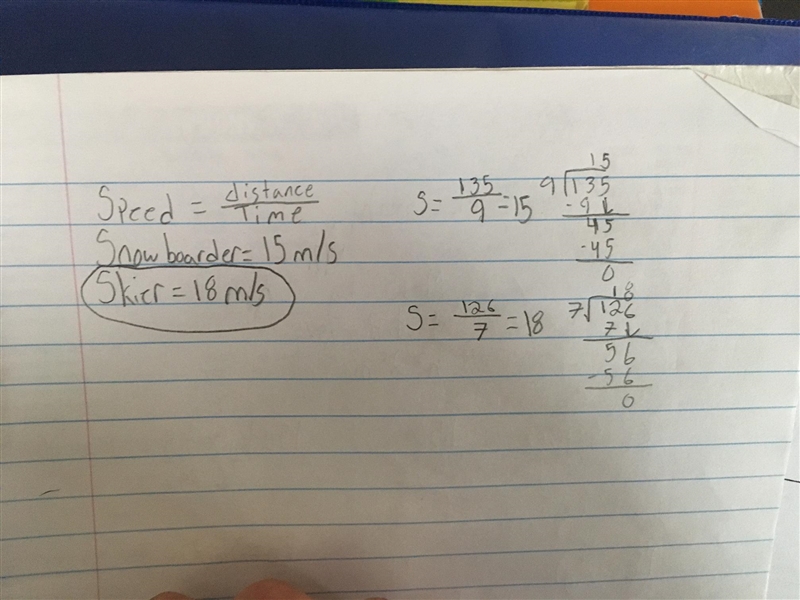 Speed = distance/Time
Snowboarder = 15 m/s
Skier = 18 m/s
S = 135/9 = 15
15
9√135
-9↓
45
-45
0
S = 126/7 = 18
18
7√126
7↓
56
-56
0